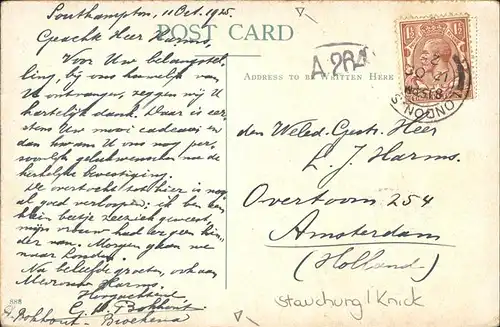 Southampton, 11 Oct. 1925.
POST CARD
Geachte Heer Harms,
Voor Uw belangstel-
ling, bij ons huwelijk van
U ontvangen, zeggen wij U
hartelijk dank. Daar is eer-
stens Uw mooi cadeau en
dan kwam U ons nog per-
soonlijk gelukwenschen na de
kerkelijke bevestiging.
De overtocht tot hier is nog
al goed verloopen; ik ben een
klein beetje zeeziek geweest,
mijn vrouw had er geen hin-
der van. Morgen gaan we
naar Londen.
Na beleefde groeten, ook aan
Mevrouw Harms.
Hoogachtend
G. B. Bokhout
888
Bokhout-
A 264
ADDRESS TO BE WRITTEN HERE
1½ 1½
LONDON S
8.15 PM
den Weled. Gestr. Heer
L. J. Harms.
Overtoom 254
Amsterdam
(Holland)
Stauchung / Knick